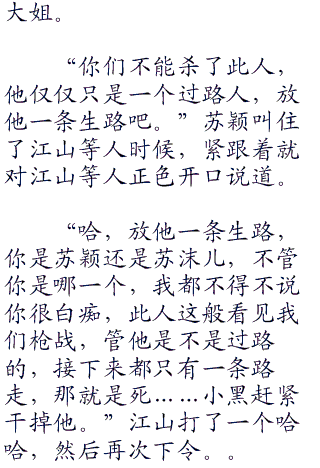 大姐。
“你们不能杀了此人，
他仅仅只是一个过路人，放
他一条生路吧。”苏颖叫住
了江山等人时候，紧跟着就
对江山等人正色开口说道。
“哈，放他一条生路，
你是苏颖还是苏沫儿，不管
你是哪一个，我都不得不说
你很白痴，此人这般看见我
们枪战，管他是不是过路
的，接下来都只有一条路
走，那就是死……小黑赶紧
干掉他。”江山打了一个哈
哈，然后再次下令。。